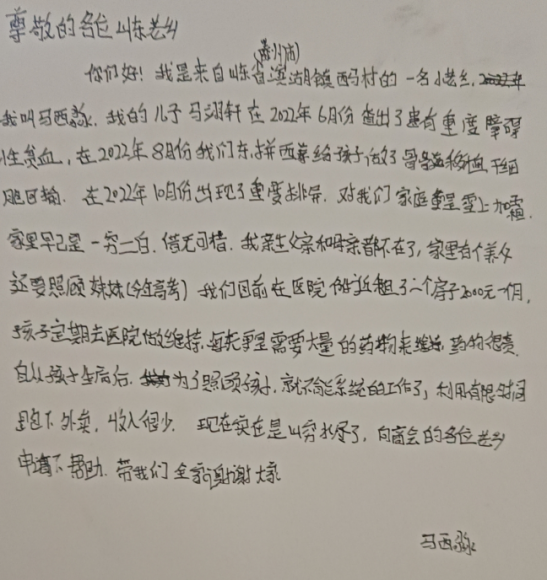 尊敬的各位山东老乡
你们好！我是来自山东省滨湖镇西马村的一名小老乡,
我叫马西淼.我的儿子马湖轩在2022年6月份查出了患有重度障碍
性贫血,在2022年8月份我们东拼西凑给孩子做了骨髓移植干细
胞回输.在2022年10月份出现了重度排异.对我们家庭重是雪上加霜.
家里早已是一穷二白.借无可借.我亲生父亲和母亲都不在了,家里有个养父
还要照顾妹妹(今年高考)我们目前在医院附近租了一个房子2000元一个月,
孩子定期去医院做维持,每天要是需要大量的药物来维持.药物很贵.
自从孩子生病后.为了照顾孩子.就不能系统的工作了,利用有限时间
跑下外卖,收入很少.现在实在是山穷水尽了,向商会的各位老乡
申请下帮助.带我们全家谢谢大家
马西淼